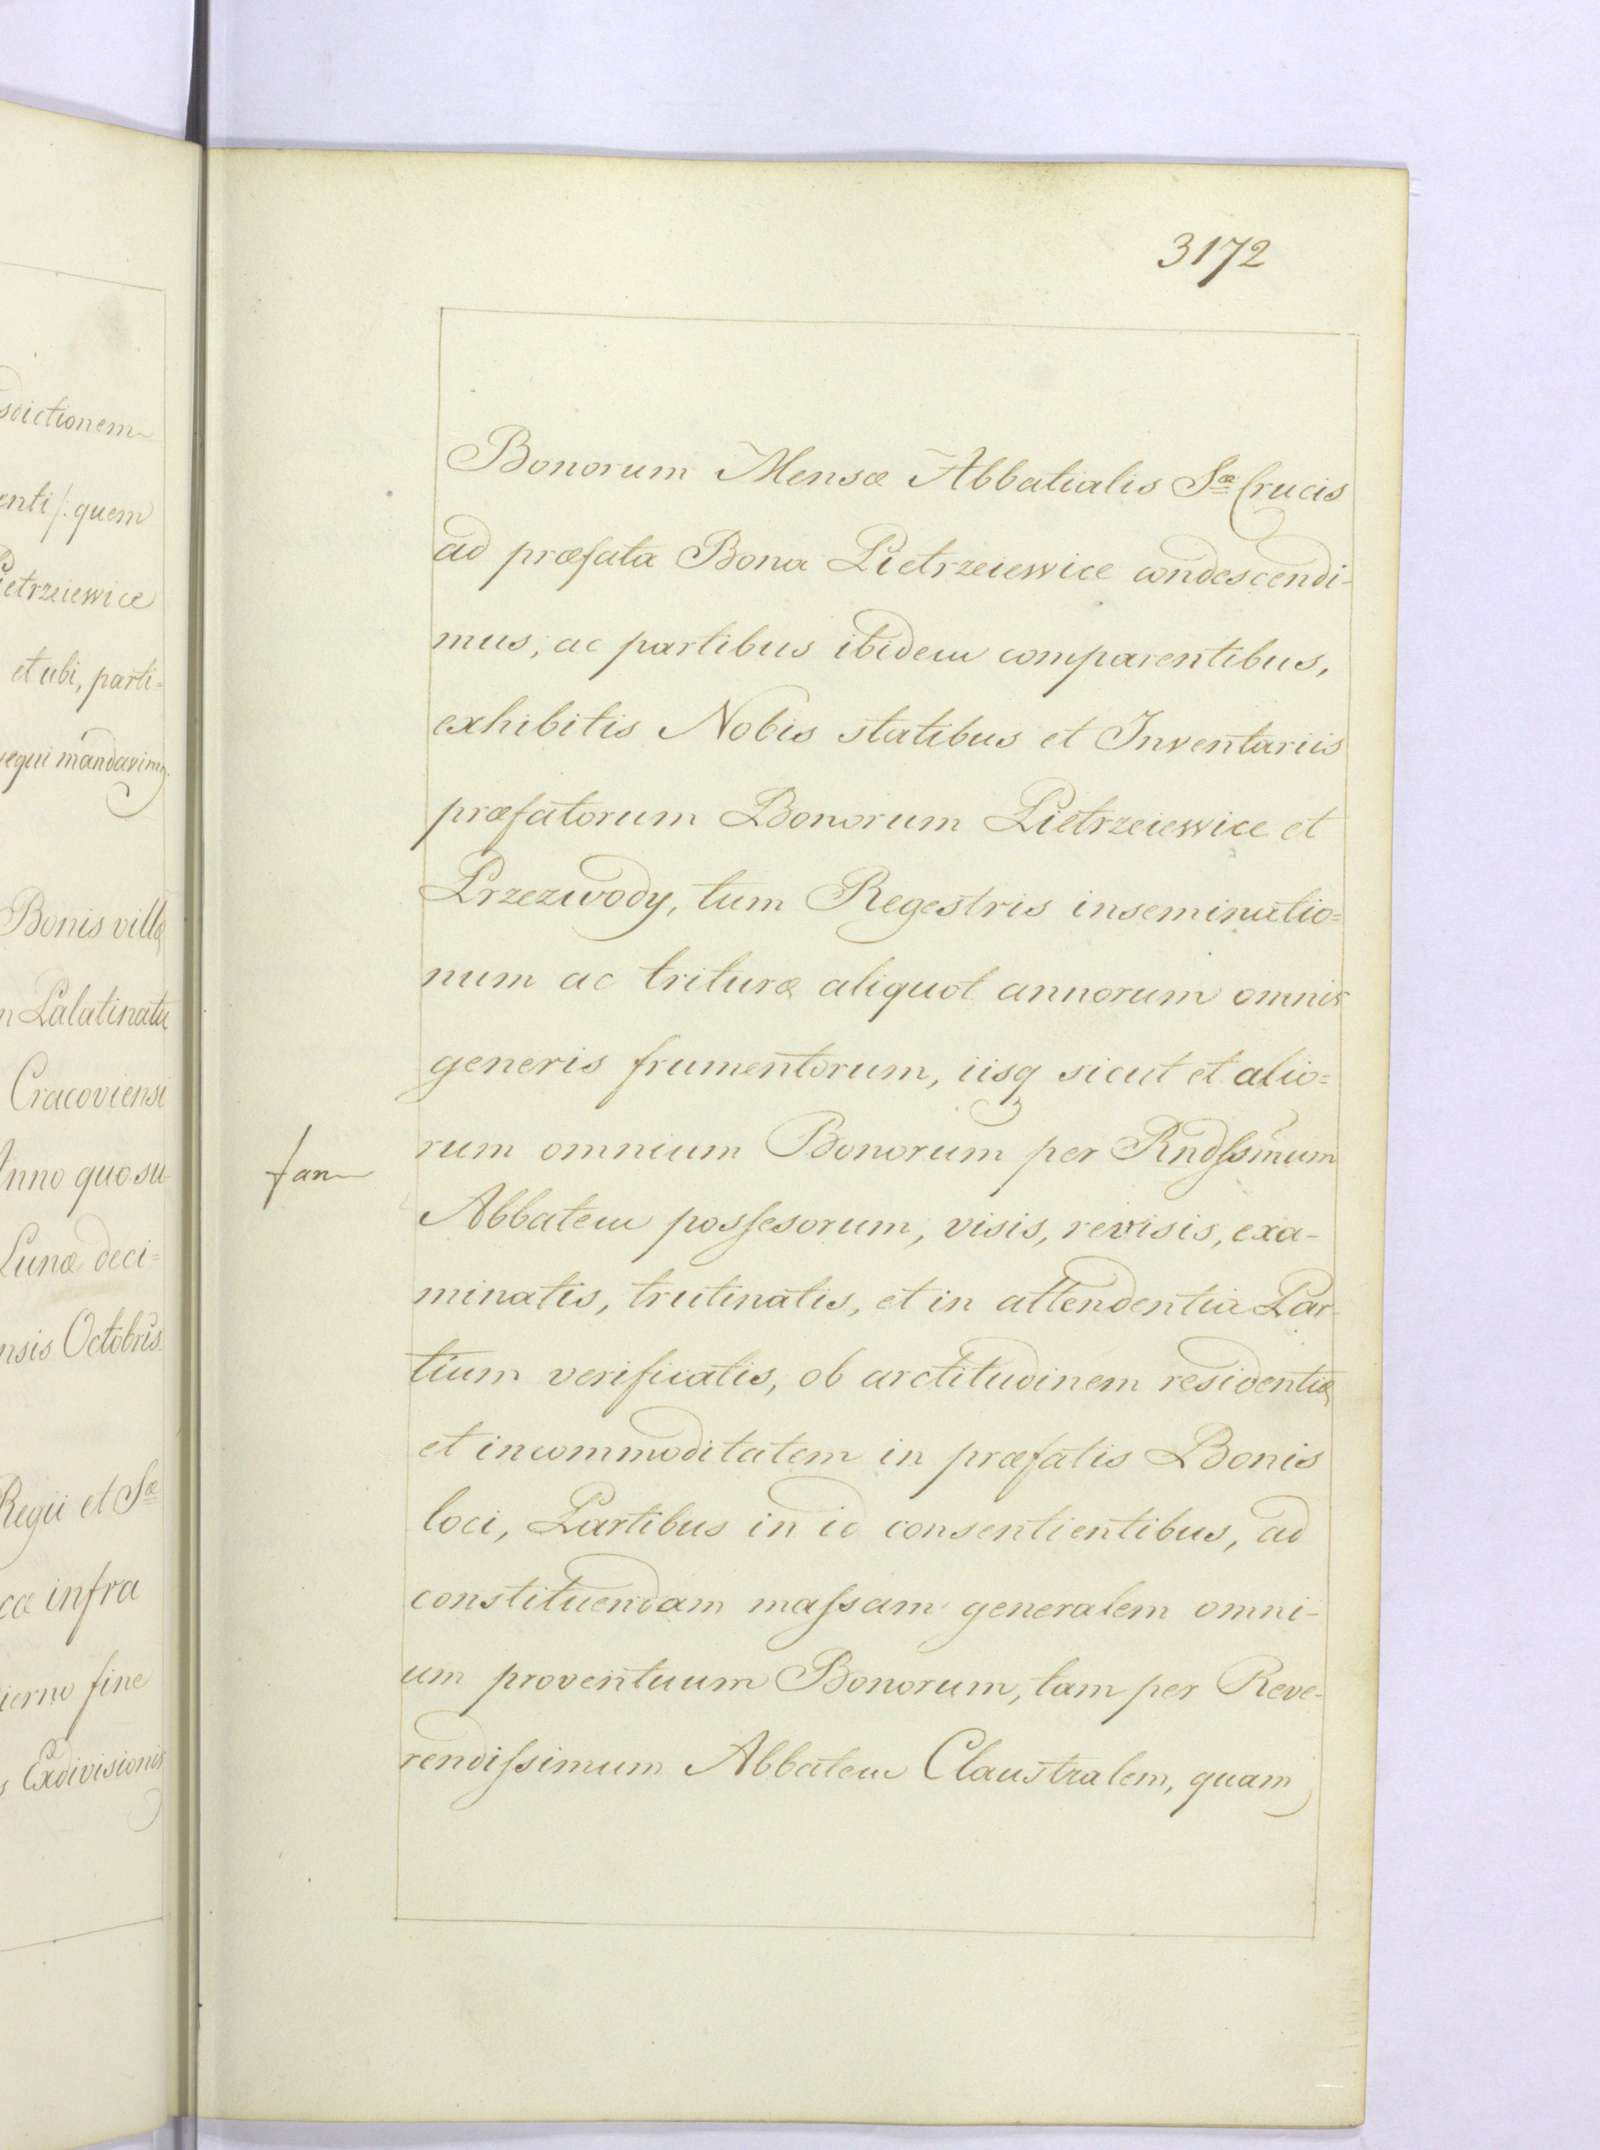 sdictionem
enti /: quem
Pietrzeiewice
et ubi, parti=
sequi mandavimg.
Bonis villæ
n Palatinatu
Cracoviensi
Anno quo su-
Lunæ deci=
nsis Octobris.
Regii et Sæ
ca infra
ierno fine
s Exdivisionis
3172
Bonorum Mensæ Abbatialis Sæ Crucis
ad præfata Bona Pietrzeiewice condescendi-
mus, ac partibus ibidem comparentibus,
exhibitis Nobis statibus et Inventariis
præfatorum Bonorum Pietrzeiewice et
Przezwody, tum Regestris inseminatio=
num ac trituræ aliquot annorum omnis
generis frumentorum, iisq sicut et alio=
rum omnium Bonorum per Rndſsmum
Abbatem poſsesorum, visis, revisis, exa-
minatis, trutinatis, et in attendentia Par-
tium verificatis, ob arctitudinem residentiæ
et incommoditatem in præfatis Bonis
loci, Partibus in id consentientibus, ad
constituendam maſsam generalem omni-
um proventuum Bonorum, tam per Reve-
rendiſsimum Abbatem Claustralem, quam